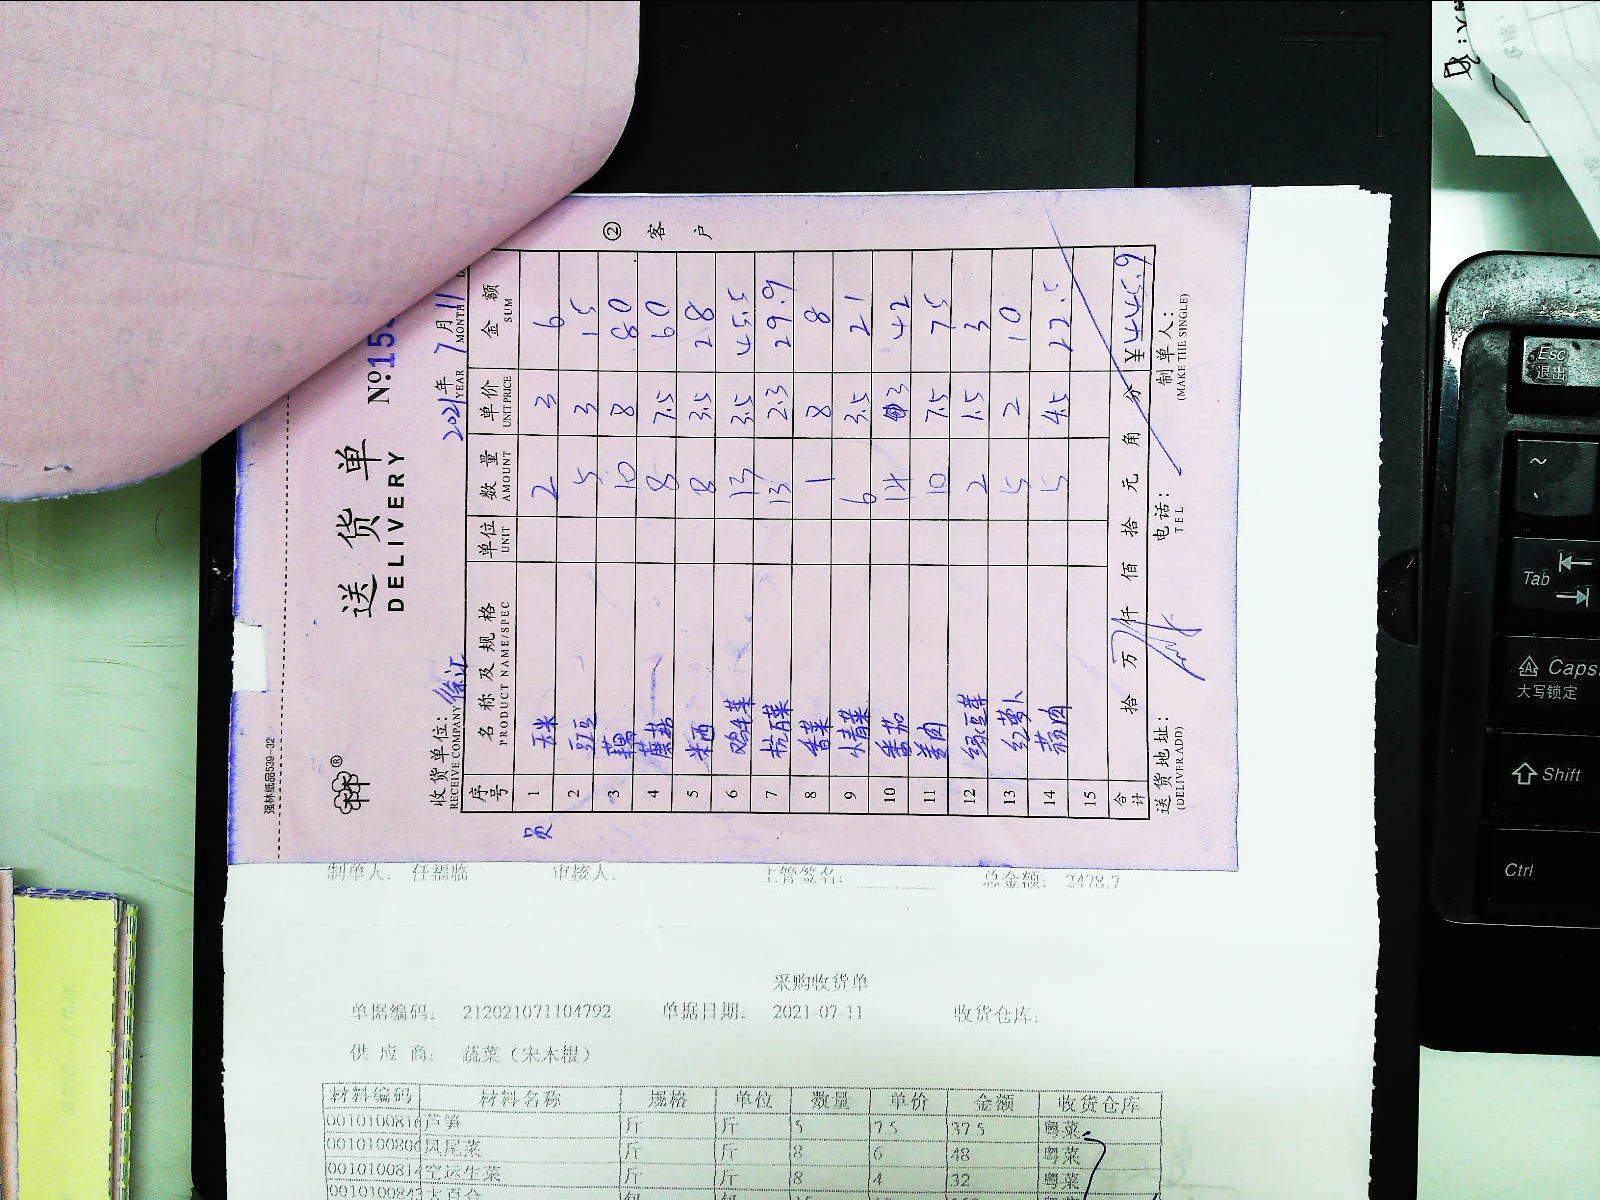 强林纸品539-32
送货单
DELIVERY
№15
收货单位: 徐江
RECEIVE COMPANY
2021年 7月 11
YEAR MONTH
② 客户
序号 名称及规格 单位 数量 单价 金额
PRODUCT NAME/SPEC UNIT AMOUNT UNIT PRICE SUM
1 玉米 2 3 6
2 豇豆 5 3 15
3 藕 10 8 80
4 蘑菇 8 7.5 60
5 米西 8 3.5 28
6 鸡毛菜 13 3.5 45.5
7 杭白菜 13 2.3 29.9
8 香菜 1 8 8
9 小青菜 6 3.5 21
10 番茄 14 3 42
11 10 7.5 75
12 绿豆芽 2 1.5 3
13 红萝卜 5 2 10
14 蒜肉 5 4.5 22.5
15
合计 拾 万 仟 佰 拾 元 角 分 ¥445.9
送货地址: 电话: 制单人:
(DELIVER ADD) TEL (MAKE THE SINGLE)
制单人: 任福临 审核人: 主管签名: 总金额: 2478.7
采购收货单
单据编码: 212021071104792 单据日期: 2021-07-11 收货仓库:
供应商: 蔬菜(宋木根)
材料编码 材料名称 规格 单位 数量 单价 金额 收货仓库
0010100816 芦笋 斤 斤 5 7.5 37.5 粤菜
0010100806 凤尾菜 斤 斤 8 6 48 粤菜
0010100814 空运生菜 斤 斤 8 4 32 粤菜
Esc
退出
~
Tab
Caps
大写锁定
Shift
Ctrl